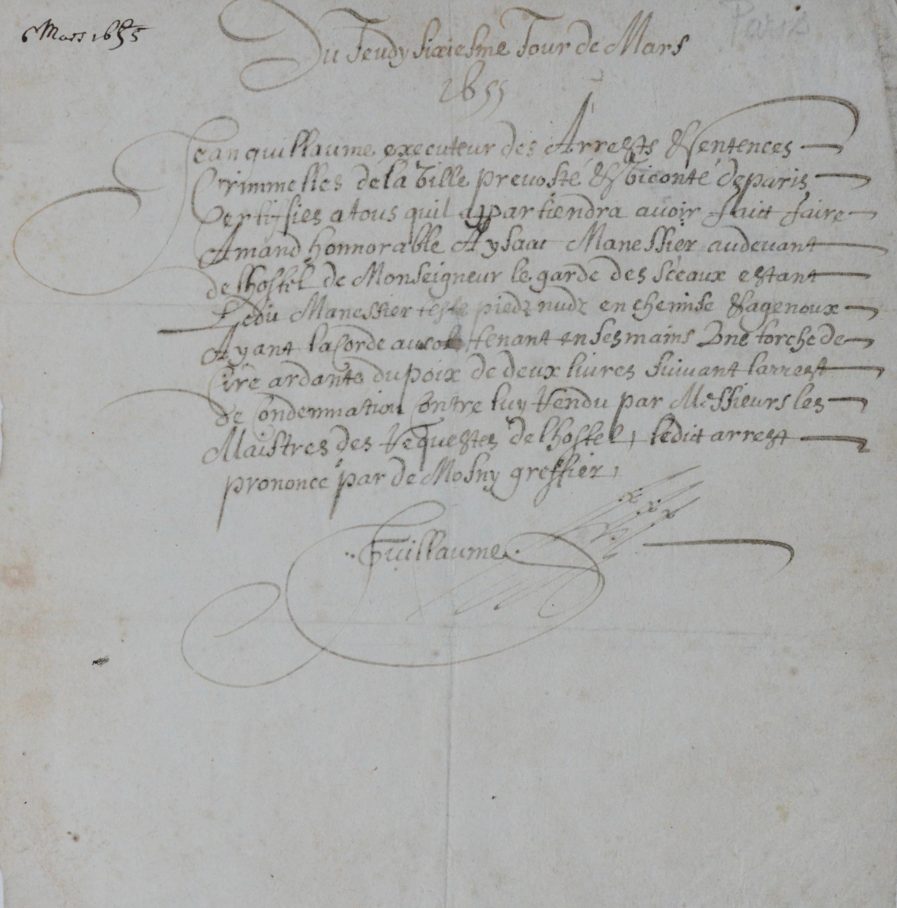 6 Mars 1655
Paris
Du Jeudy sixiesme Jour de Mars
1655
Jean guillaume executeur des Arrests & sentences
Crimmelles de la Ville prevosté & Viconté de paris
Certiffies a tous quil appartiendra avoir faict faire
Amand honnorable A ysaac Manessier audevant
de lhostel de Monseigneur le garde des sceaux estant
Ledit Manessier teste piedz nudz en chemise & agenoux
Ayant la Corde au col tenant en ses mains Une torche de
Cire ardante du poix de deux livres suivant larrest
de Condemnation Contre luy Rendu par Messieurs les
Maistres des Requestes de lhostel, ledit arrest
prononcé par de Mosny greffier,
Guillaume